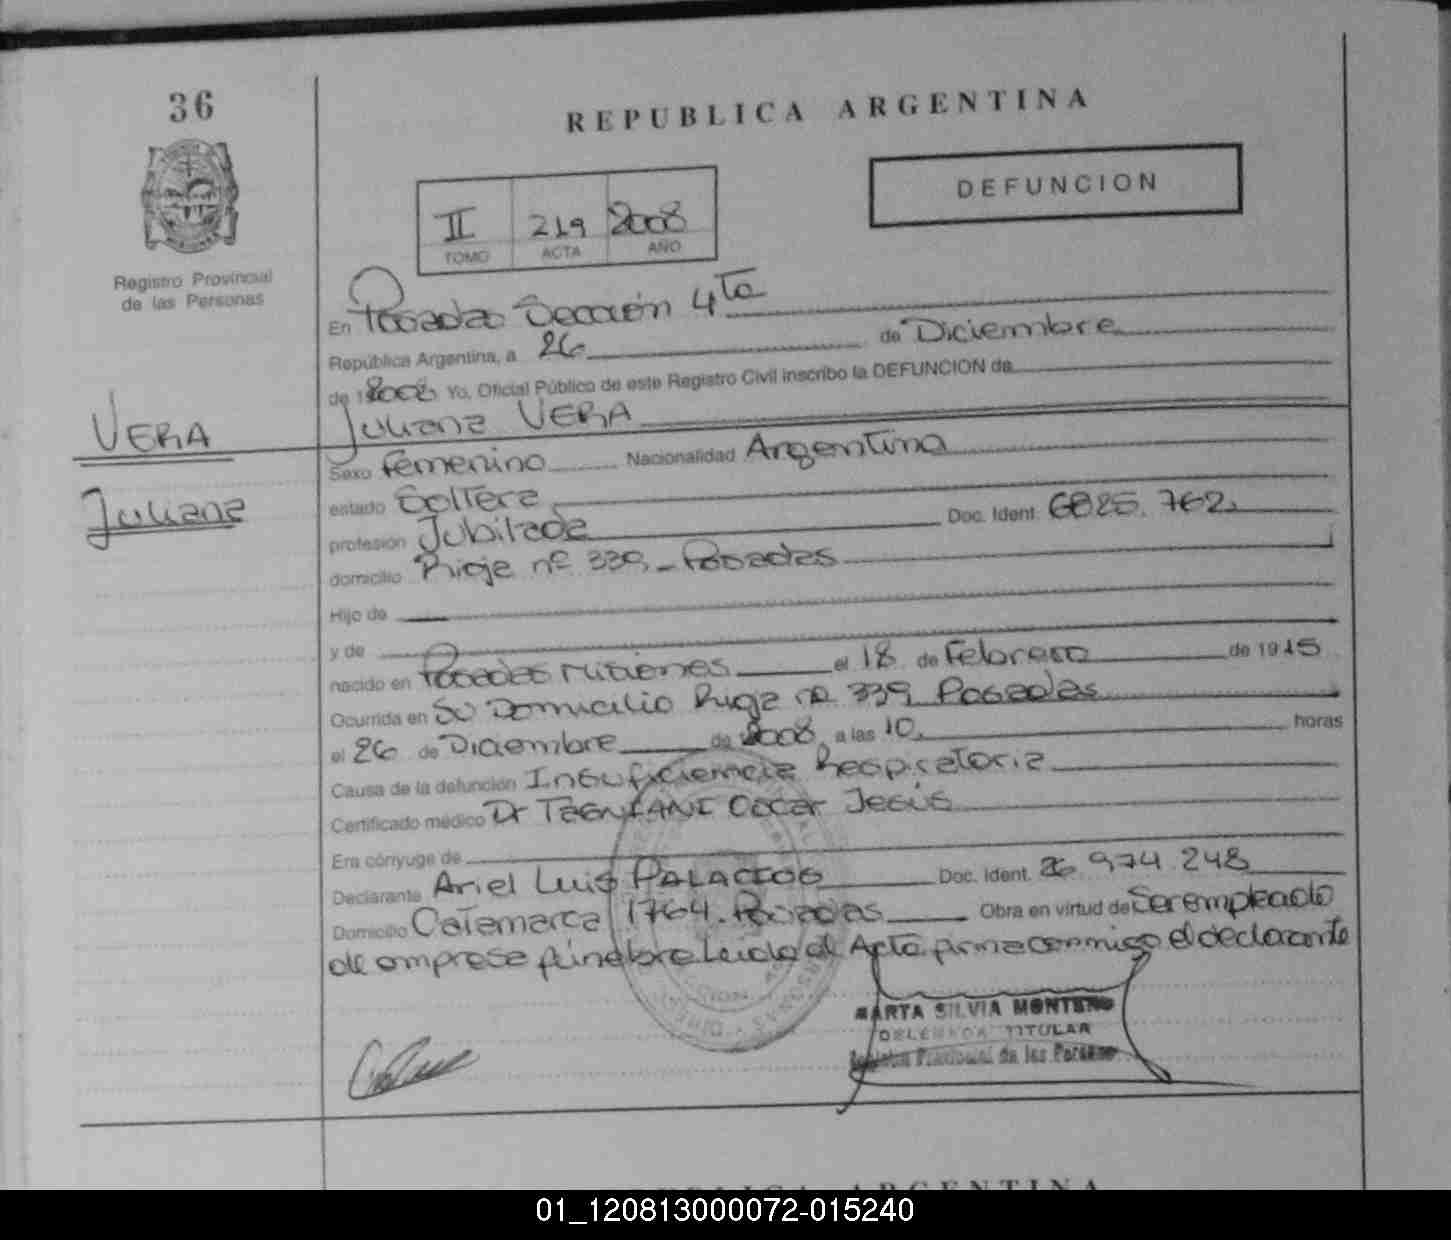 36
REPUBLICA ARGENTINA
DEFUNCION
II 219 2008
TOMO ACTA AÑO
Registro Provincial
de las Personas
En Posadas Sección 4ta
República Argentina, a 26 de Diciembre
de 2008 Yo, Oficial Público de este Registro Civil inscribo la DEFUNCION de
VERA
Juliana
Juliana VERA
Sexo Femenino Nacionalidad Argentina
estado Soltera
profesión Jubilada Doc. Ident. 6825.762
domicilio Rioja nº 339 - Posadas
Hijo de
y de
nacido en Posadas Misiones el 18 de Febrero de 1915
Ocurrida en Su Domicilio Rioja nº 339 Posadas
el 26 de Diciembre de 2008 a las 10 horas
Causa de la defunción Insuficiencia Respiratoria
Certificado médico Dr Oscar Jesús
Era cónyuge de
Declarante Ariel Luis PALACIOS Doc. Ident. 26.974.248
Domicilio Catamarca 1764. Posadas Obra en virtud de Ser empleado
de empresa fúnebre Leida el Acta firma conmigo el declarante
MARTA SILVIA MONTERO
DELEGADA TITULAR
Registro Provincial de las Personas
REPUBLICA ARGENTINA
01_120813000072-015240